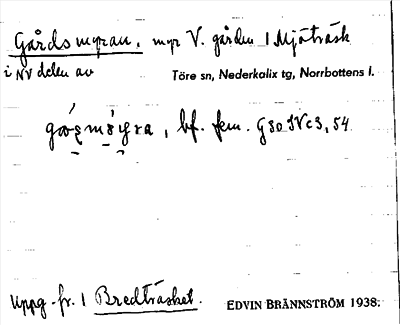 Gårdsmyran, myr V. gården 1 Mjöträsk
i NV delen av
Töre sn, Nederkalix tg, Norrbottens l.
bf. fem. G30 SV c 3, 54
Uppg. fr. 1 Bredträsket.
EDVIN BRÄNNSTRÖM 1938.